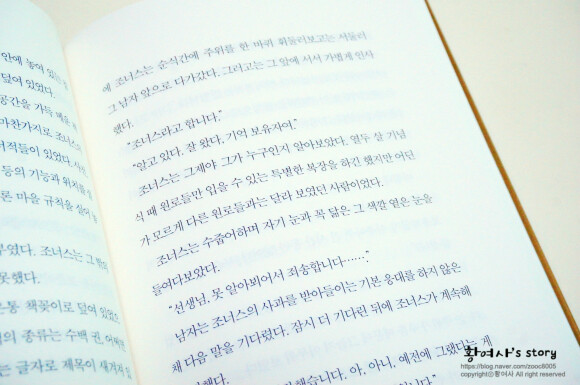 안에 놓여 있는
덮여 있었다.
공간을 가득 메운
마찬가지로 조너스
서적들이 있었다. 사전
등의 기능과 위치를
론 마을 규칙을 실어
부였다. 조너스는 그 밖에
못했다.
온통 책꽂이로 덮여 있었으
의 종류는 수백 권, 어쩌면
는 글자로 제목이 새겨져 있
에 조너스는 순식간에 주위를 한 바퀴 휘둘러보고는 서둘러
그 남자 앞으로 다가갔다. 그러고는 그 앞에 서서 가볍게 인사
했다.
"조너스라고 합니다."
"알고 있다. 잘 왔다. 기억 보유자여."
조너스는 그제야 그가 누구인지 알아보았다. 열두 살 기념
식 때 원로들만 입을 수 있는 특별한 복장을 하긴 했지만 어딘
가 모르게 다른 원로들과는 달라 보였던 사람이었다.
조너스는 수줍어하며 자기 눈과 꼭 닮은 그 색깔 옅은 눈을
들여다보았다.
"선생님, 못 알아봬어서 죄송합니다……."
남자는 조너스의 사과를 받아들이는 기본 응대를 하지 않은
채 다음 말을 기다렸다. 잠시 더 기다린 뒤에 조너스가 계속해
말했다.
했습니다. 아, 아니, 예전에 그랬다는 게
황여사's story
https://blog.naver.com/zooc8005
copyrightⓒ황여사 All right reserved